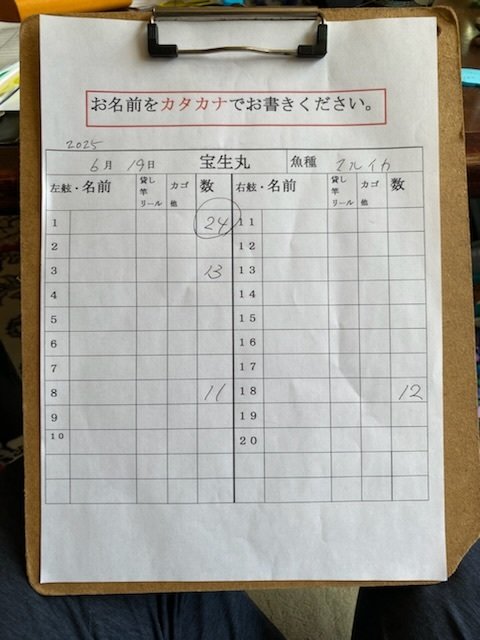 お名前をカタカナでお書きください。
2025
6月 19日 宝生丸 魚種 マルイカ
左舷・名前 貸し竿リール カゴ他 数 右舷・名前 貸し竿リール カゴ他 数
1 24 11
2 12
3 13 13
4 14
5 15
6 16
7 17
8 11 18 12
9 19
10 20